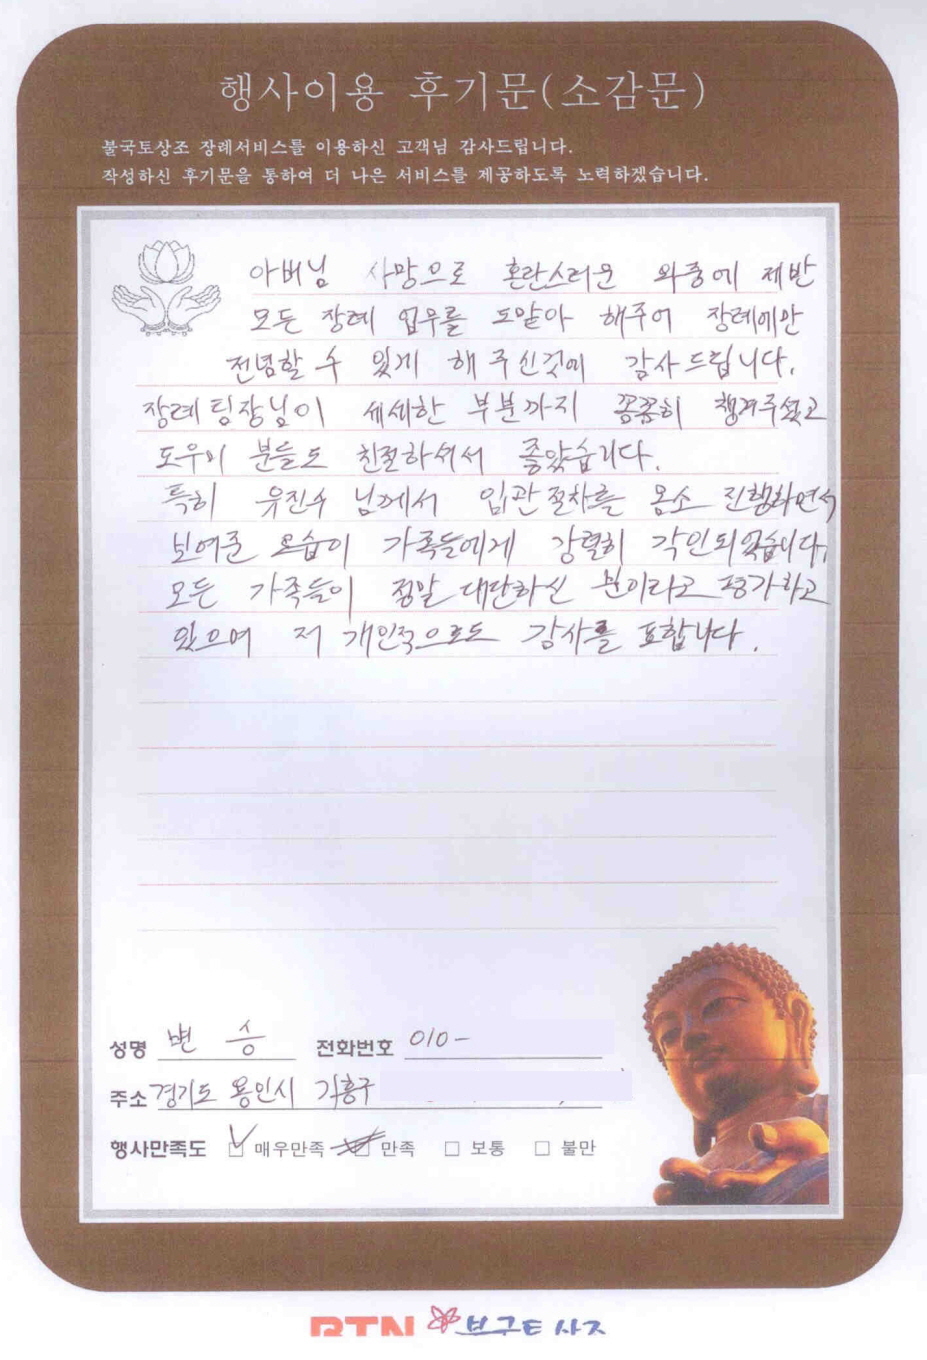 행사이용 후기문(소감문)
불국토상조 장례서비스를 이용하신 고객님 감사드립니다.
작성하신 후기문을 통하여 더 나은 서비스를 제공하도록 노력하겠습니다.
아버님 사망으로 혼란스러운 와중에 제반
모든 장례 업무를 도맡아 해주어 장례에만
전념할 수 있게 해 주신것에 감사드립니다.
장례팀장님이 세세한 부분까지 꼼꼼히 챙겨주셨고
도우미 분들도 친절하셔서 좋았습니다.
특히 유진수 님께서 입관절차를 몸소 진행하면서
보여준 모습이 가족들에게 강렬히 각인되었습니다.
모든 가족들이 정말 대단하신 분이라고 평가하고
있으며 저 개인적으로도 감사를 표합니다.
성명 변 승 전화번호 010-
주소 경기도 용인시 기흥구
행사만족도 매우만족 만족 보통 불만
BTN 불국토상조